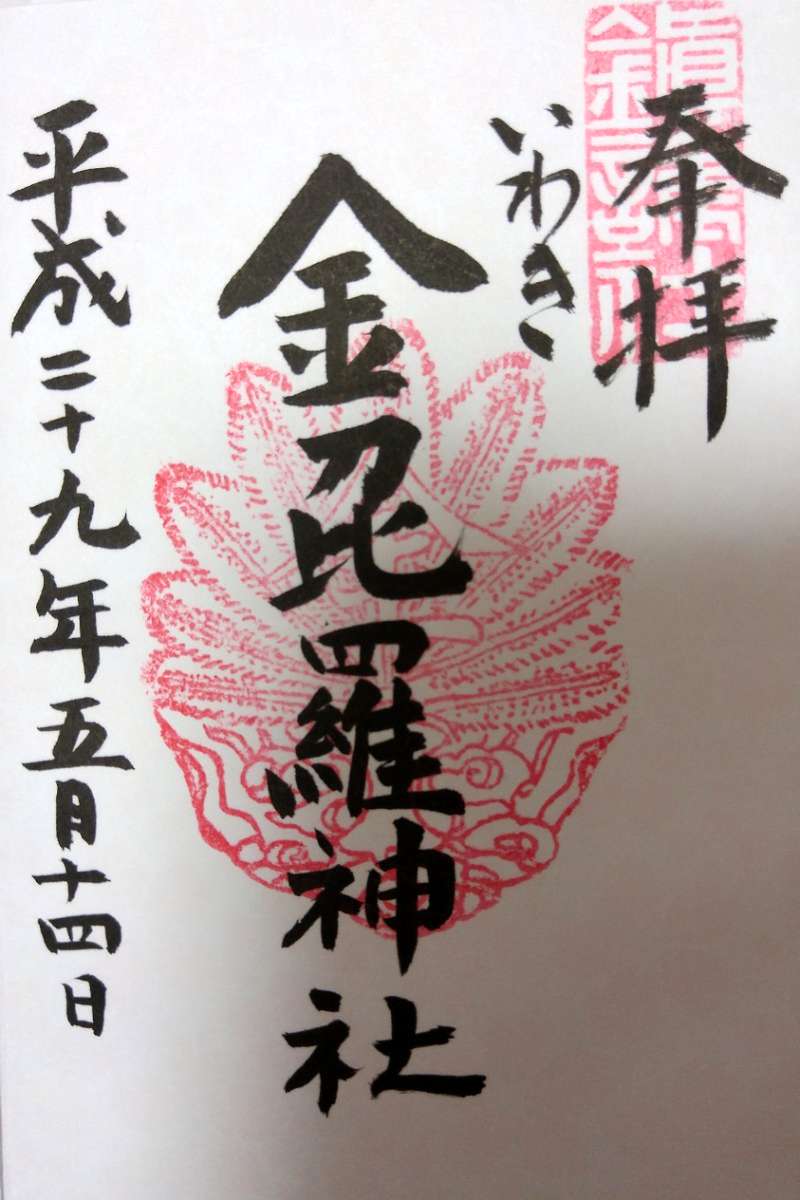 奉拝
いわき
金刀比羅神社
平成二十九年五月十四日